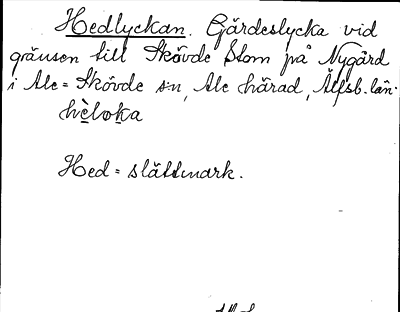 Hedlyckan. Gärdeslycka vid
gränsen till Skövde Stom på Nygård
i Ale=Skövde sn, Ale härad, Älfsb. län.
hèloka
Hed = slättmark.